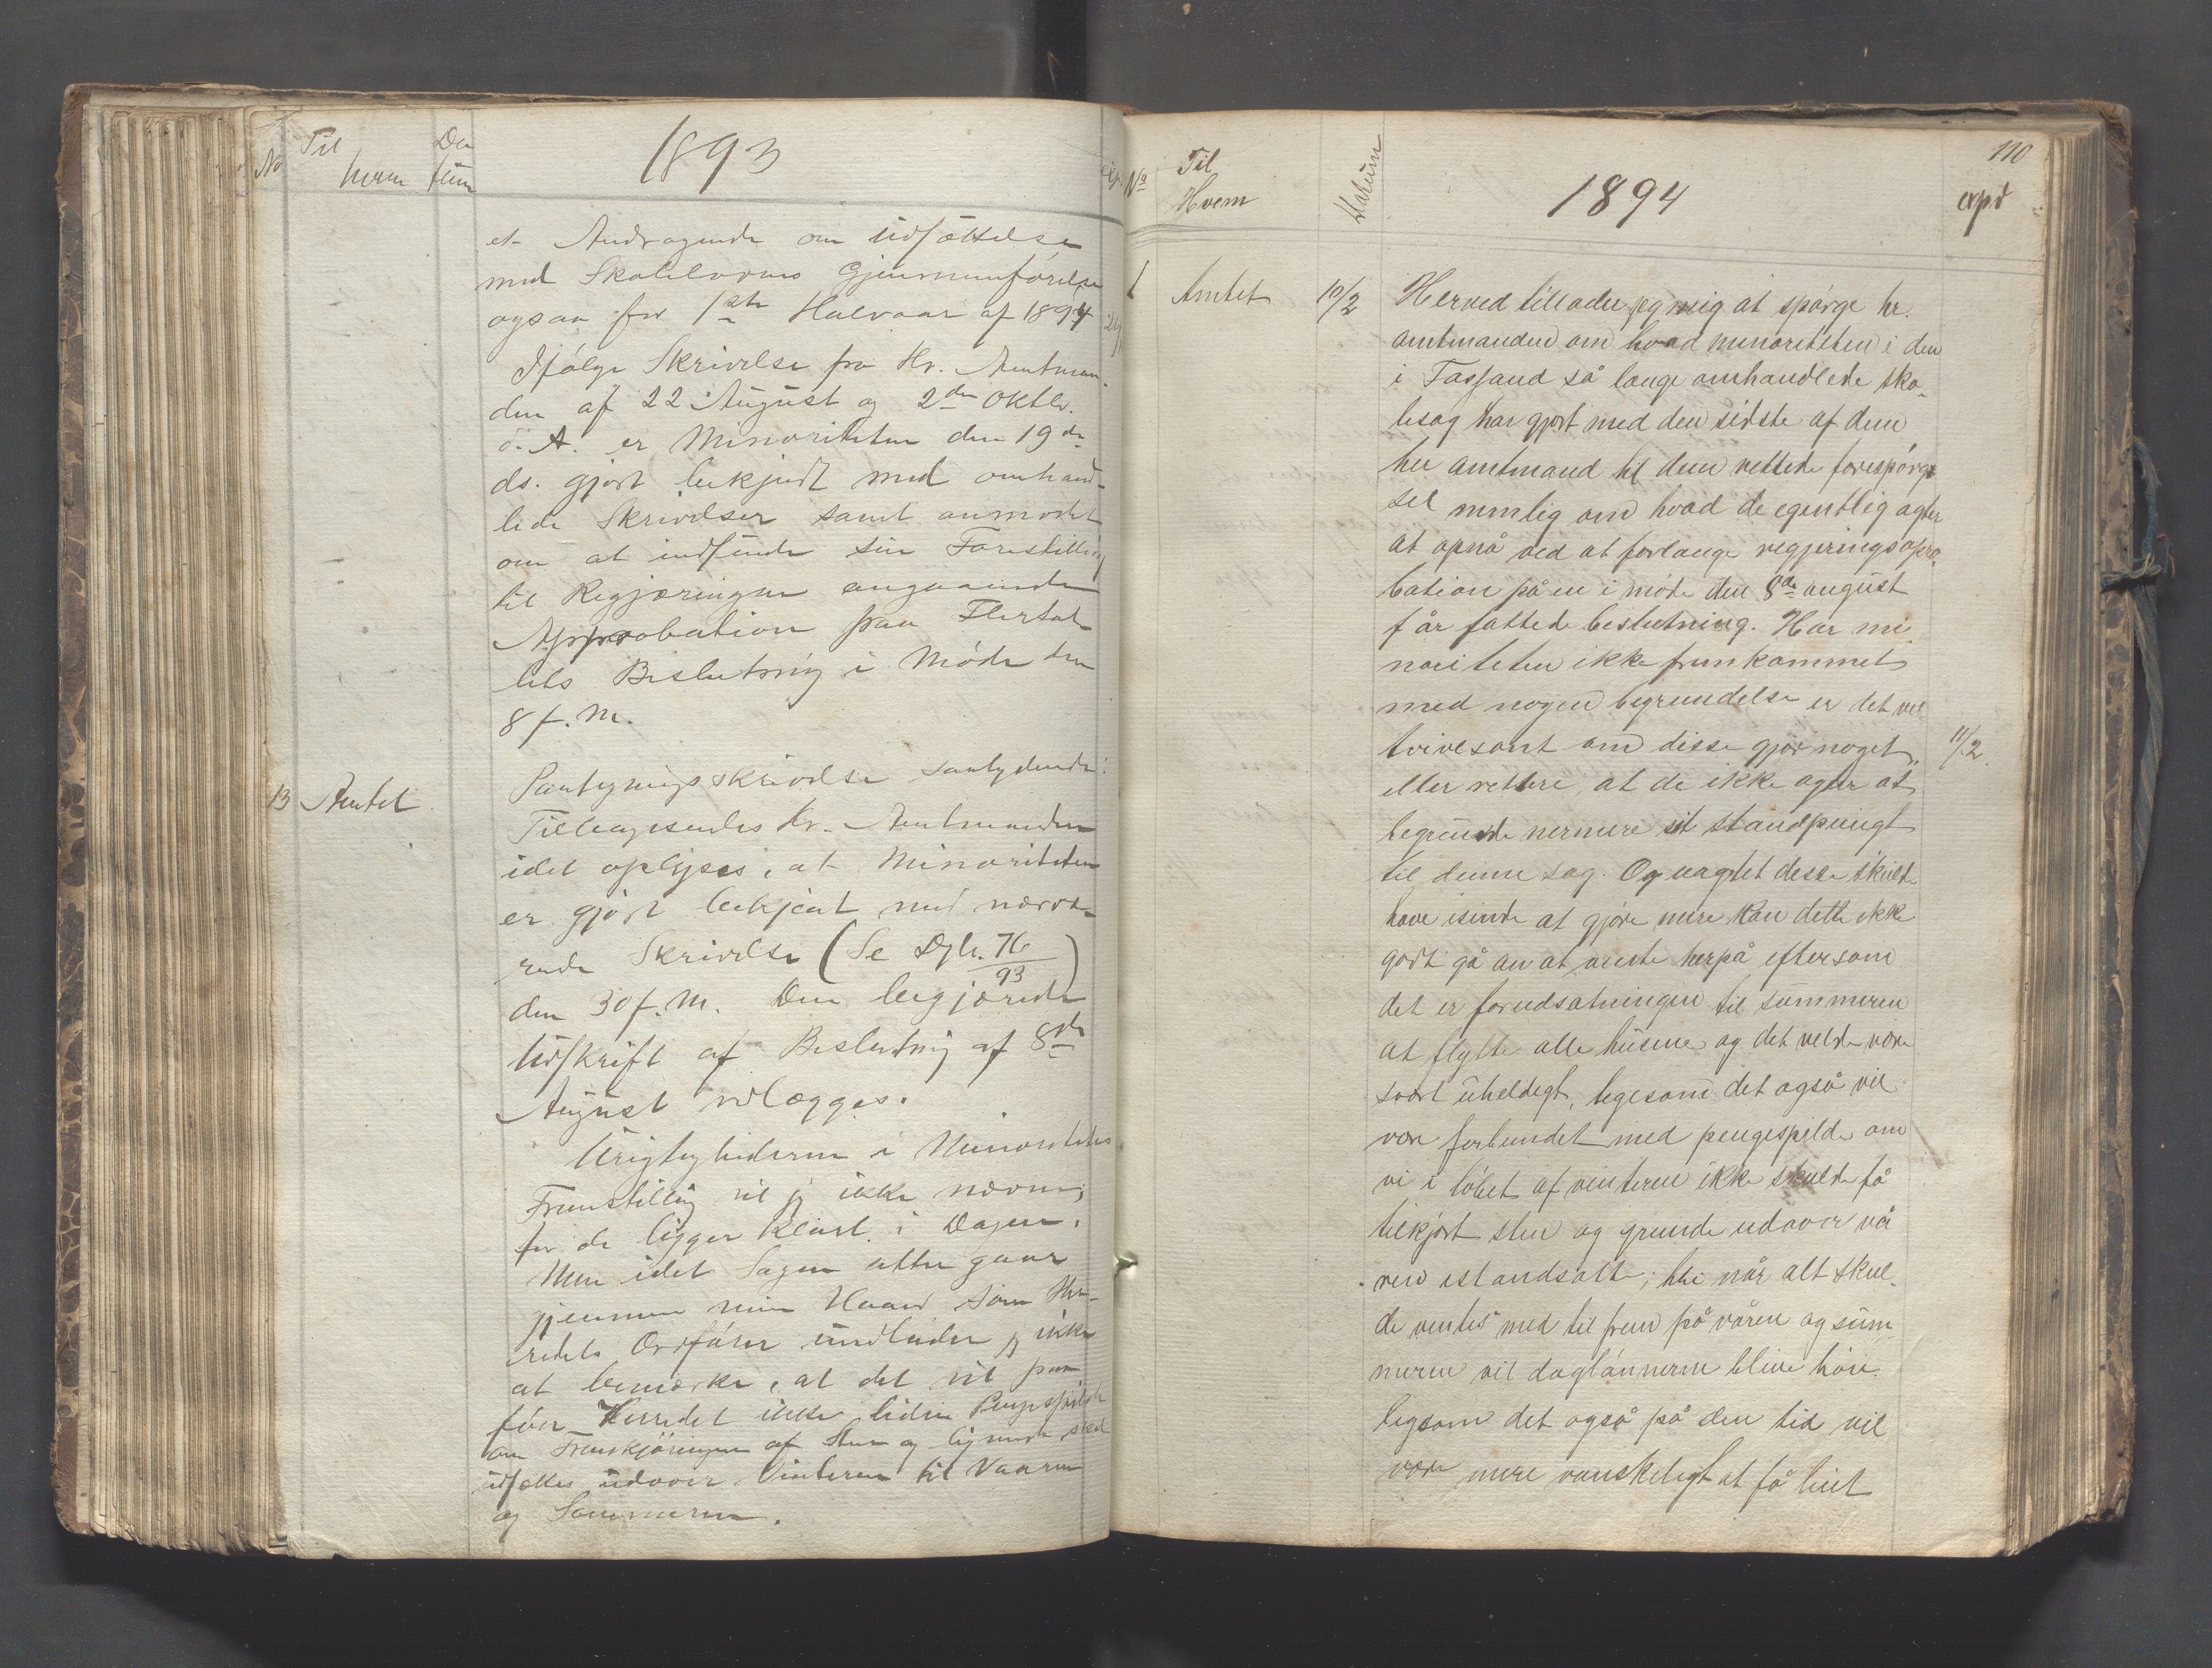 No Til hvem Datum 1893
et Andragende om Udsættelse
med Skolelovens Gjennemførelse
ogsaa for 1ste Halvaar af 1894
Ifølge Skrivelse fra Hr. Amtman-
den af 22 August og 2den Oktbr.
d. A. er Minoriteten den 19de
ds. gjort bekjendt med omhand-
lede Skrivelser samt anmodet
om at indsende sin Forestilling
til Regjæringen angaaende
Approbation paa Flertal-
lets Beslutning i Møde den
8 f. M.
13 Amtet Paategningsskrivelse saalydende:
Tilbagesendes Hr. Amtmanden
idet oplyses, at Minoriteten
er gjort bekjent med nærvæ-
rende Skrivelse (Se 76/93)
den 30 f. M. Den begjærede
Udskrift af Beslutning af 8de
August vedlægges.
Urigtighederne i Minoritetens
Fremstilling vil jeg ikke nævne,
for de ligger klart i Dagen.
Men idet Sagen atter gaar
gjennem min Haand som Her-
redets Ordfører undlader jeg ikke
at bemærke, at det vil paa
føre Herredet ikke liden Pengespilde
om Fremkjøringen af Sten og lignende skal
udsættes udover Vinteren til Vaaren
og Sommeren.
No Til Hvem Datum 1894 110 expd
1 Amtet 10/2 Herved tillader jeg mig at spørge hr.
amtmanden om hvad minoriteten i den
i Fassand så længe omhandlede sko-
lesag har gjort med den sidste af dem
her amtmand til dem rettede forespørg-
sel nemlig om hvad de egentlig agter
at opnå ved at forlange regjeringsapro-
bation på en i møde den 8de august
f år fattede beslutning. Har mi
noriteten ikke fremkommet
med nogen begrundelse er det vel
tvivlsomt om disse gjør noget, 11/2
eller rettere, at de ikke agter at
begrunde nermere sit standpungt
til denne sag. Og uagtet desse skulde
have isinde at gjøre mere kan dette ikke
godt gå an at vente herpå eftersom
det er forudsætningen til sommeren
at flytte alle husene og det vilde være
svært uheldigt, ligesom det også vil
være forbundet med pengespilde om
vi i løbet af vinteren ikke skulde få
tilkjørt sten og grunde udover vå
ren istandsatte; thi når alt skul-
de ventes med til frem på våren og som
meren vil daglønnerne blive høie.
ligsom det også på den tid vil
være mere vanskeligt at få leiet